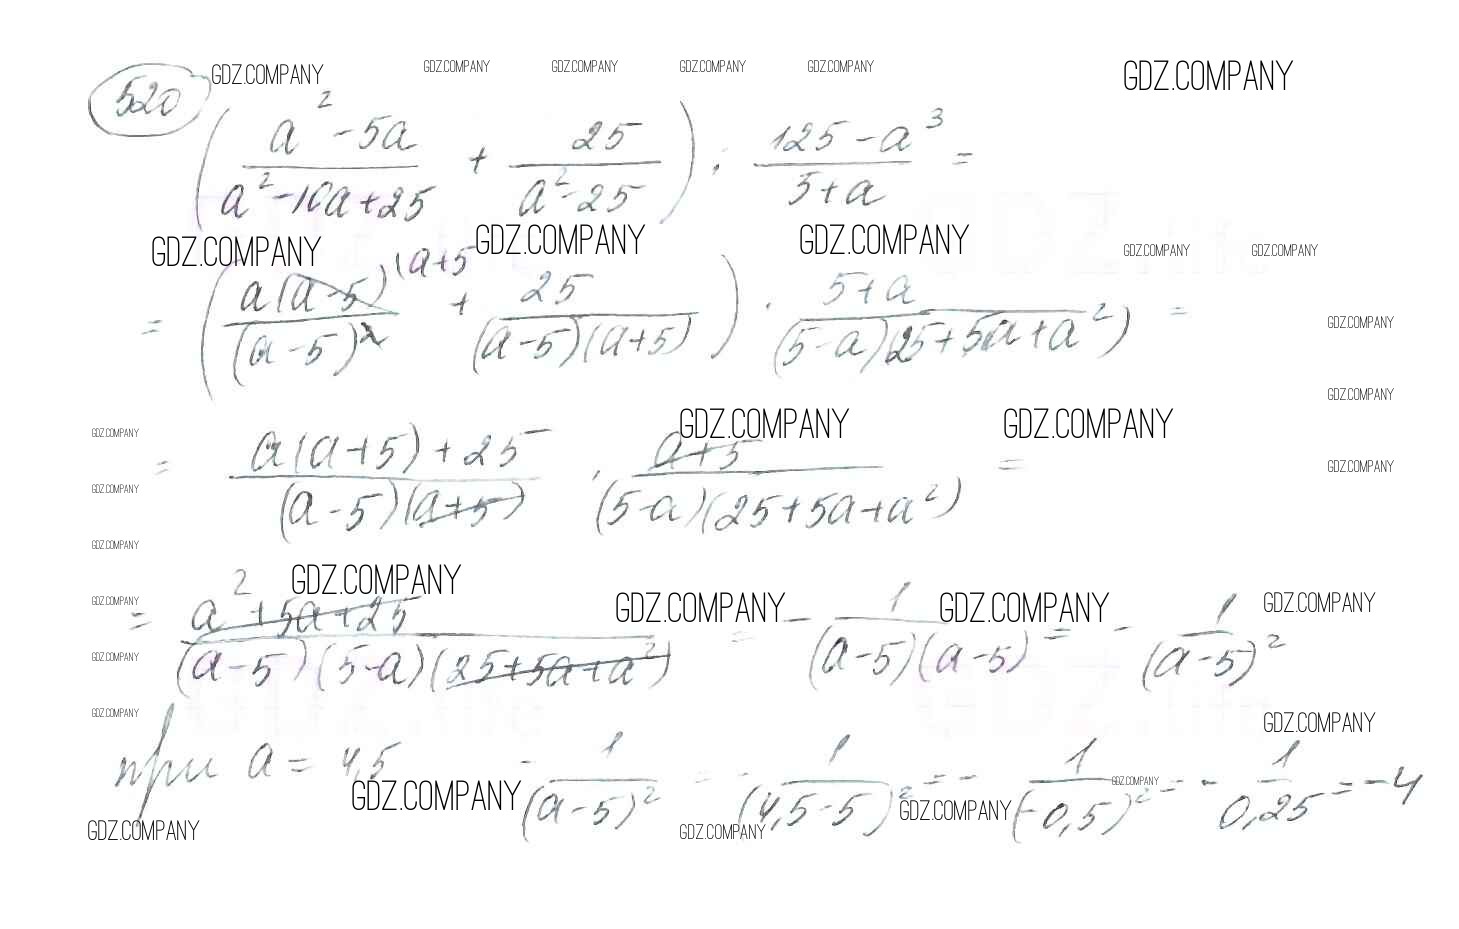 520
GDZ.COMPANY GDZ.COMPANY GDZ.COMPANY GDZ.COMPANY GDZ.COMPANY GDZ.COMPANY
( (a² - 5a)/(a² - 10a + 25) + 25/(a² - 25) ) : (125 - a³)/(5 + a) =
GDZ.COMPANY GDZ.COMPANY GDZ.COMPANY GDZ.COMPANY GDZ.COMPANY
= ( a(a - 5)/(a - 5)² (a+5 + 25/((a - 5)(a + 5)) ) · (5 + a)/((5 - a)(25 + 5a + a²)) =
GDZ.COMPANY
GDZ.COMPANY
GDZ.COMPANY GDZ.COMPANY GDZ.COMPANY
= (a(a + 5) + 25)/((a - 5)(a + 5)) · (a + 5)/((5 - a)(25 + 5a + a²)) =
GDZ.COMPANY GDZ.COMPANY
GDZ.COMPANY
GDZ.COMPANY GDZ.COMPANY GDZ.COMPANY GDZ.COMPANY GDZ.COMPANY
= (a² + 5a + 25)/((a - 5)(5 - a)(25 + 5a + a²)) = - 1/((a - 5)(a - 5)) = - 1/(a - 5)²
GDZ.COMPANY
GDZ.COMPANY GDZ.COMPANY
при a = 4,5 - 1/(a - 5)² = - 1/(4,5 - 5)² = - 1/(-0,5)² = - 1/0,25 = -4
GDZ.COMPANY GDZ.COMPANY GDZ.COMPANY
GDZ.COMPANY GDZ.COMPANY